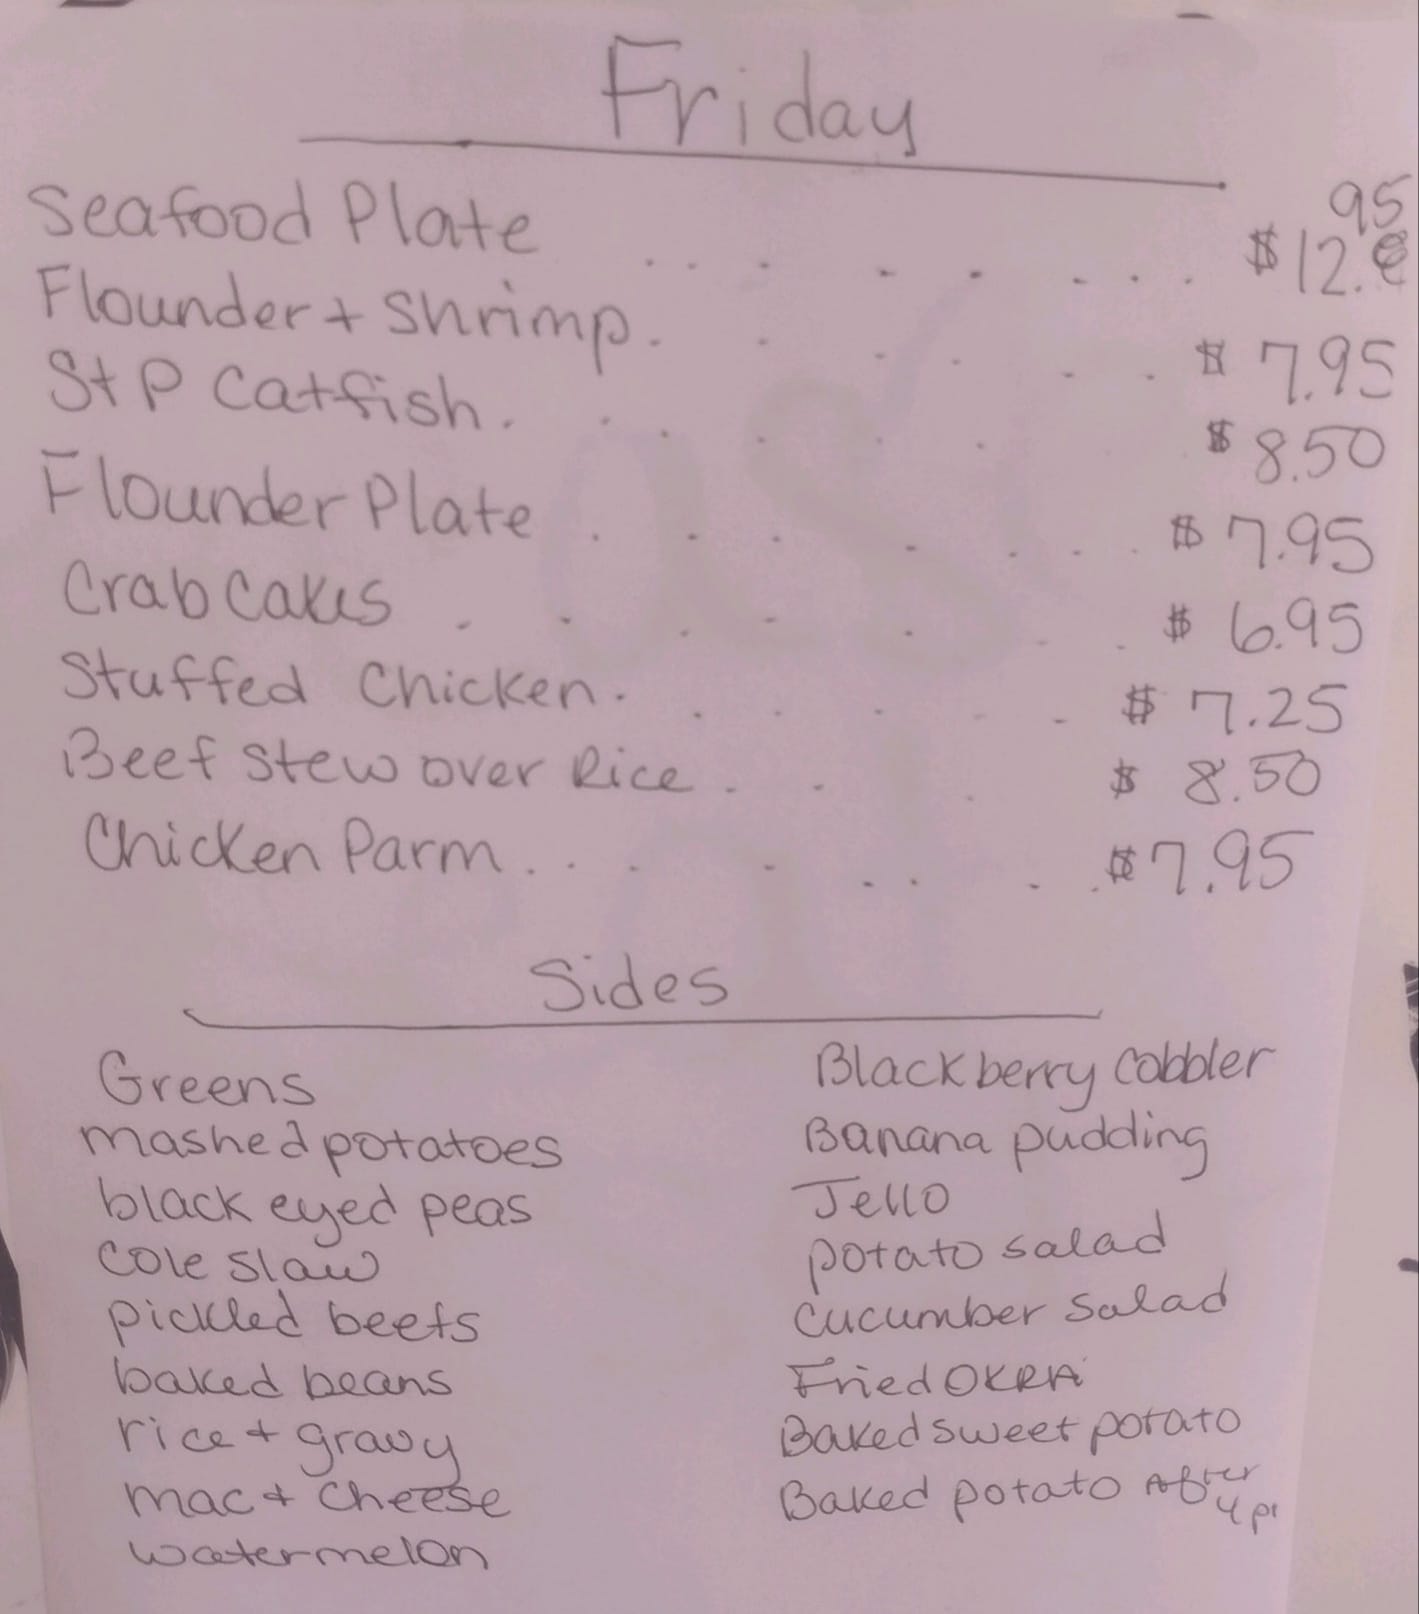 Friday
Seafood Plate . . . . . . . . $12.95
Flounder + Shrimp . . . . . . $7.95
St P Catfish . . . . . . $8.50
Flounder Plate . . . . . . . $7.95
Crab Cakes . . . . . . . $6.95
Stuffed Chicken . . . . . $7.25
Beef Stew over Rice . . . $8.50
Chicken Parm . . . . . . . . $7.95
Sides
Greens
mashed potatoes
black eyed peas
cole slaw
pickled beets
baked beans
rice + gravy
mac + cheese
watermelon
Blackberry cobbler
Banana pudding
Jello
potato salad
cucumber salad
Fried OKRA
Baked sweet potato
Baked potato After
4 p